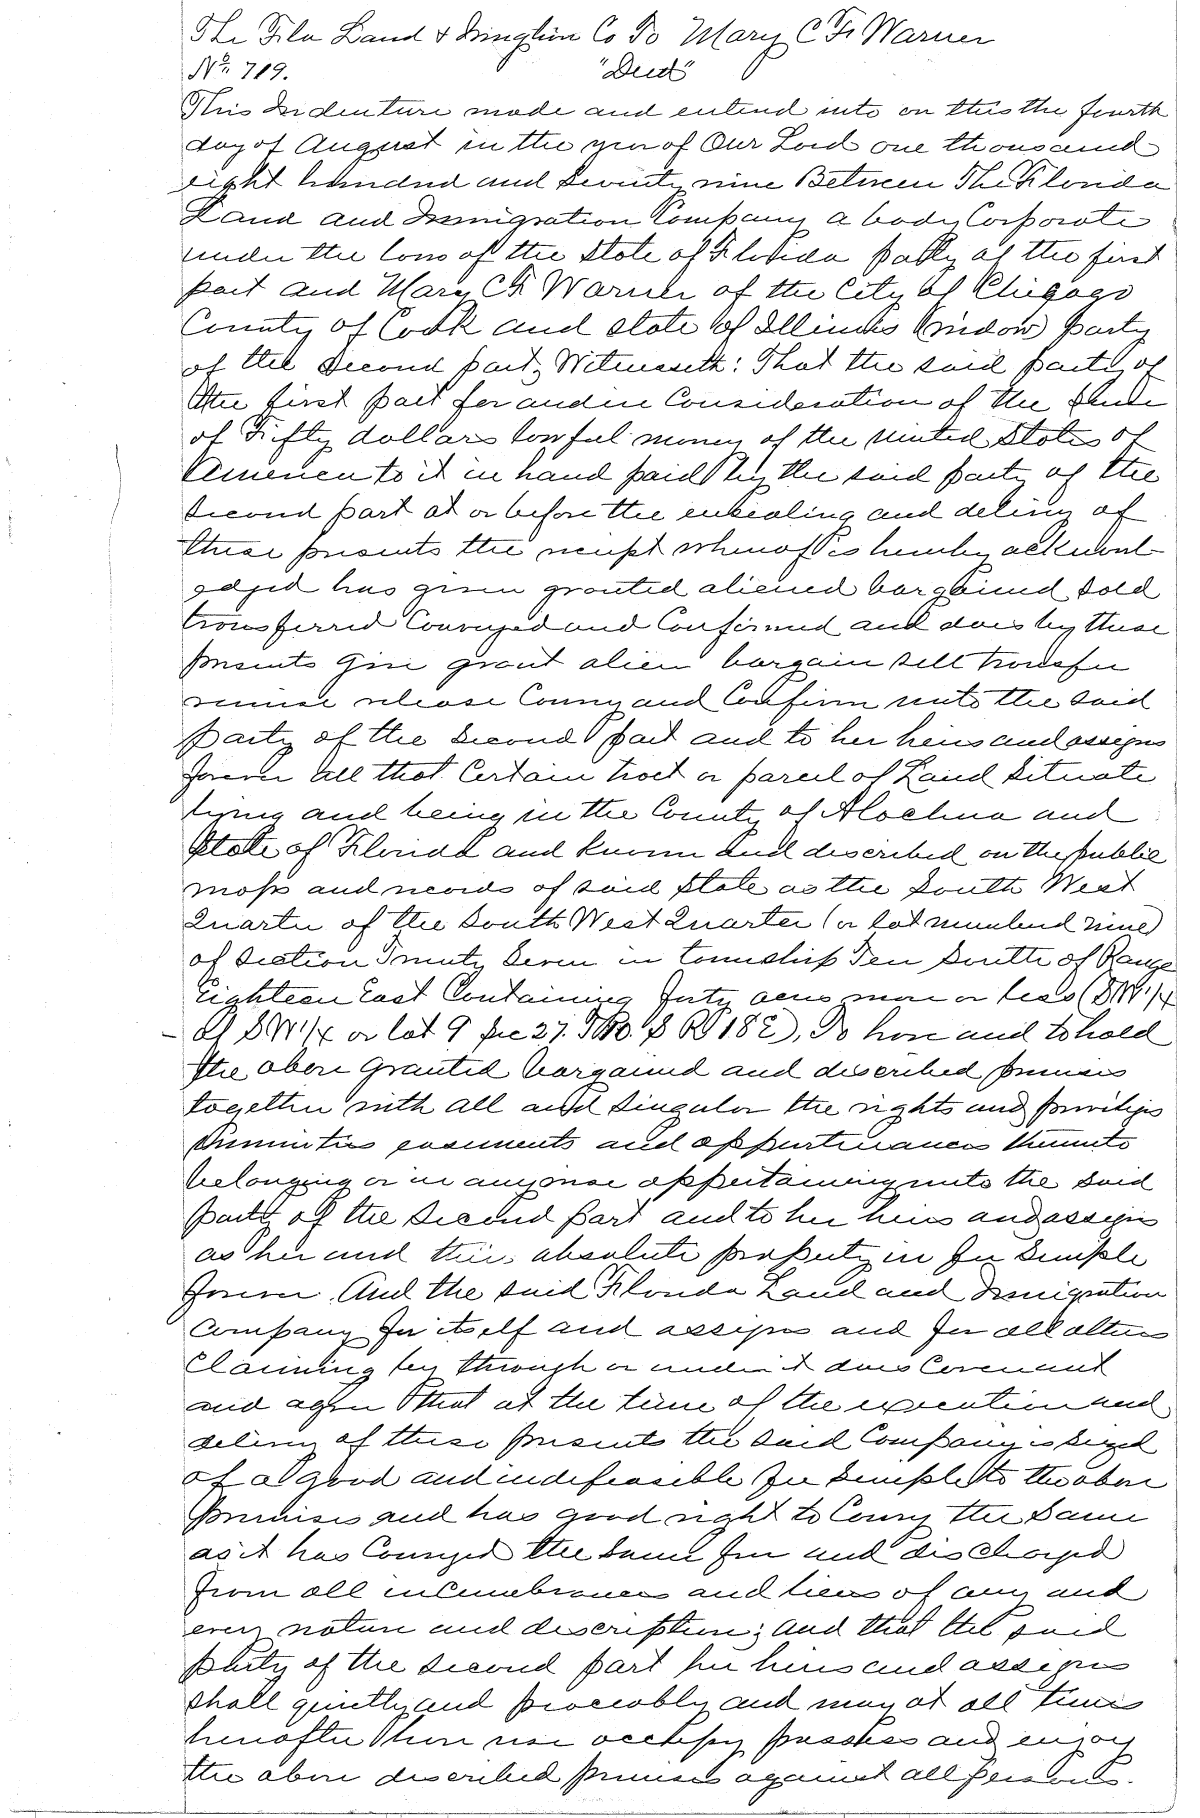 The Fla Land & Imigtion Co To Mary C F Warner
No. 719. "Deed"
This Indenture made and entered into on this the fourth
day of August in the year of Our Lord one thousand
eight hundred and Seventy nine Between The Florida
Land and Immigration Company a body Corporate
under the laws of the State of Florida party of the first
part and Mary C F Warner of the City of Chicago
County of Cook and State of Illinois (widow) party
of the Second part, Witnesseth: That the said party of
the first part for and in Consideration of the Sum
of Fifty dollars lawful money of the United States of
America to it in hand paid by the said party of the
Second part at or before the ensealing and delivery of
these presents the receipt whereof is hereby acknowl-
edged has given granted aliened bargained Sold
transferred Conveyed and Confirmed and does by these
presents Give grant alien bargain sell transfer
remise release Convey and Confirm unto the said
party of the Second part and to her heirs and assigns
forever all that Certain tract or parcel of Land Situate
lying and being in the County of Alachua and
State of Florida and known and described on the public
maps and records of said State as the South West
Quarter of the South West Quarter (or Lot numbered nine)
of Section Twenty Seven in Township Ten South of Range
Eighteen East Containing forty acres more or less (SW1/4
of SW1/4 or lot 9 Sec 27. T10. S R 18 E), To have and to hold
the above Granted bargained and described premises
together with all and Singular the rights and privileges
immunities easements and appurtenances thereunto
belonging or in anywise appertaining unto the said
party of the Second part and to her heirs and assigns
as her and their absolute property in fee Simple
forever. And the said Florida Land and Immigration
Company for itself and assigns and for all others
Claiming by through or under it does Covenant
and agree that at the time of the execution and
delivery of these presents the said Company is Seized
of a good and indefeasible fee Simple to the above
premises and has good right to Convey the Same
as it has Conveyed the same free and discharged
from all incumbrances and liens of any and
every nature and description; and that the said
party of the Second part her heirs and assigns
shall quietly and peaceably and may at all times
hereafter have use occupy possess and enjoy
the above described premises against all persons.